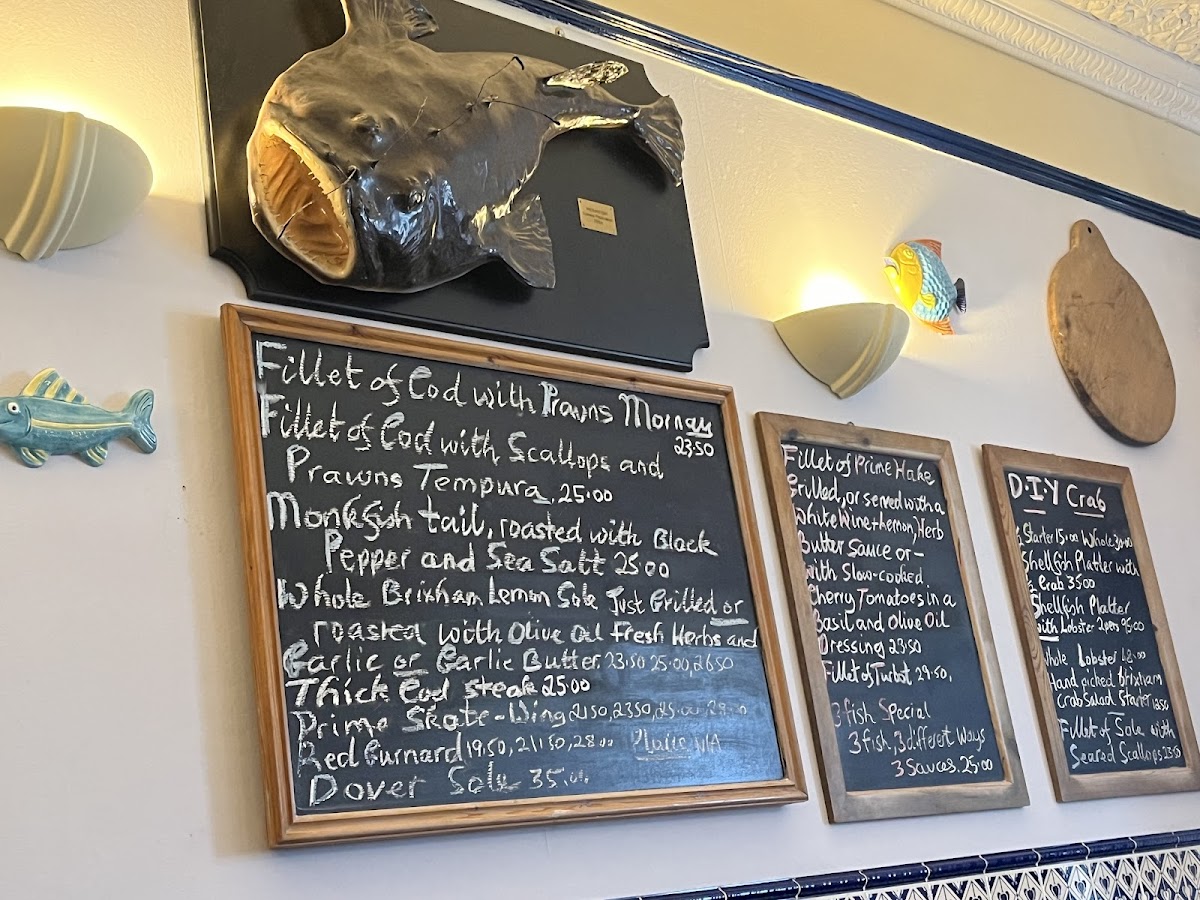 Fillet of Cod with Prawns Mornay
23.50
Fillet of Cod with Scallops and
Prawns Tempura. 25.00
Monkfish tail, roasted with Black
Pepper and Sea Salt 25.00
Whole Brixham Lemon Sole Just Grilled or
roasted with Olive Oil Fresh Herbs and
Garlic or Garlic Butter. 23.50 25.00, 26.50
Thick Cod steak 25.00
Prime Skate-Wing 21.50, 23.50, 25.00
Red Gurnard 19.50, 21.50, 28.00 Plaice N/A
Dover Sole 35.00
Fillet of Prime Hake
Grilled, or served with a
White Wine + Lemon, Herb
Butter Sauce or -
with Slow-cooked
Cherry Tomatoes in a
Basil and Olive Oil
Dressing 23.50
Fillet of Turbot 29.50.
3 fish Special
3 fish, 3 different Ways
3 Sauces. 25.00
D.I.Y Crab
Starter 15.00 Whole 30.00
Shellfish Platter with
½ Crab 35.00
Shellfish Platter
with Lobster 2pers 95.00
Whole Lobster 48.00
Hand picked Brixham
Crab Salad Starter
Fillet of Sole with
Seared Scallops 23.50